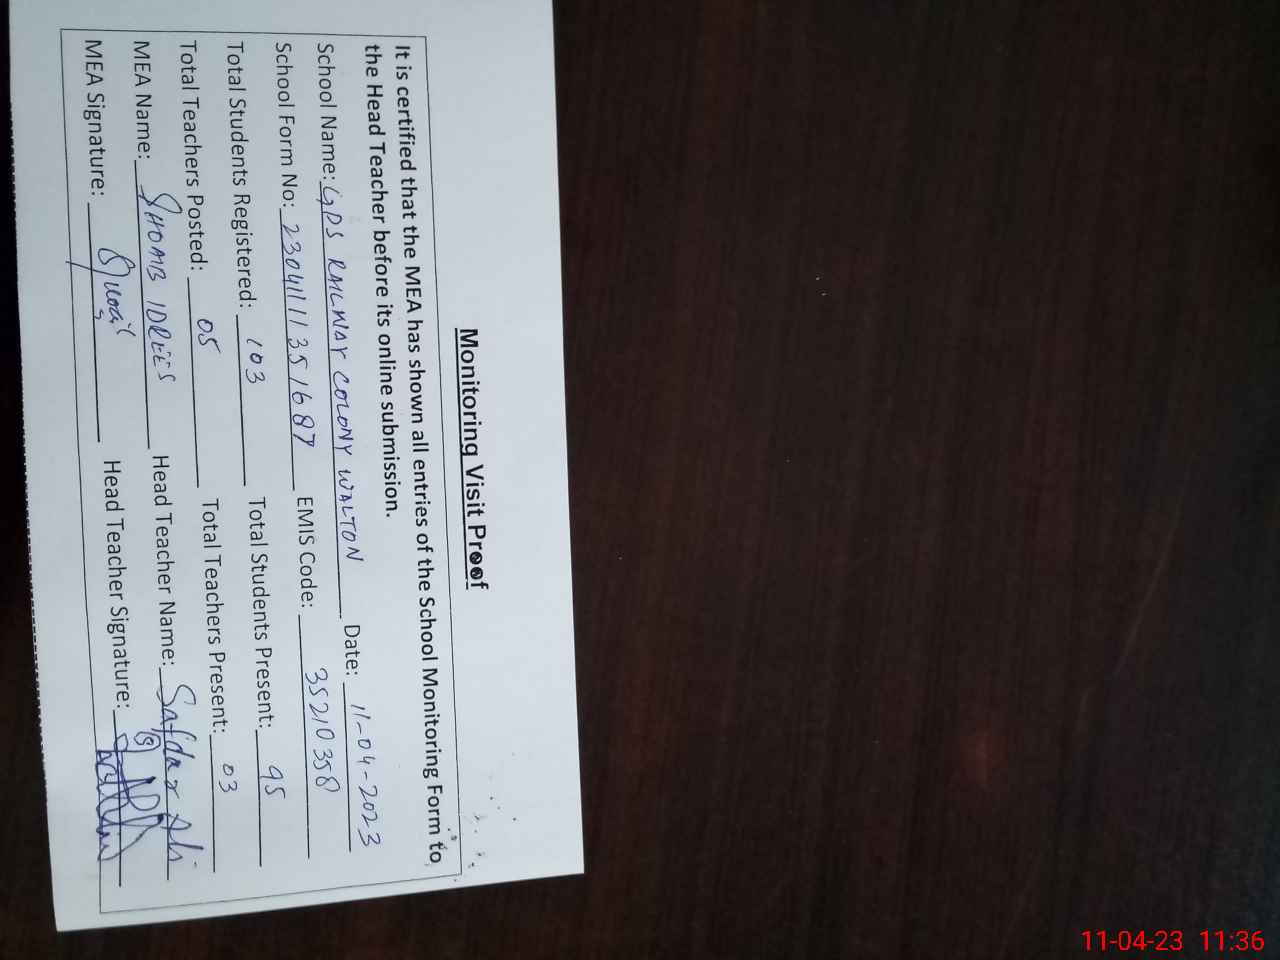 Monitoring Visit Proof
It is certified that the MEA has shown all entries of the School Monitoring Form to
the Head Teacher before its online submission.
School Name: GPS RAILWAY COLONY WALTON Date: 11-04-2023
School Form No: 2304111351687 EMIS Code: 35210358
Total Students Registered: 103 Total Students Present: 95
Total Teachers Posted: 05 Total Teachers Present: 03
MEA Name: SHOAIB IDREES Head Teacher Name: Safdar Ali
MEA Signature: Shoaib Head Teacher Signature:
11-04-23 11:36